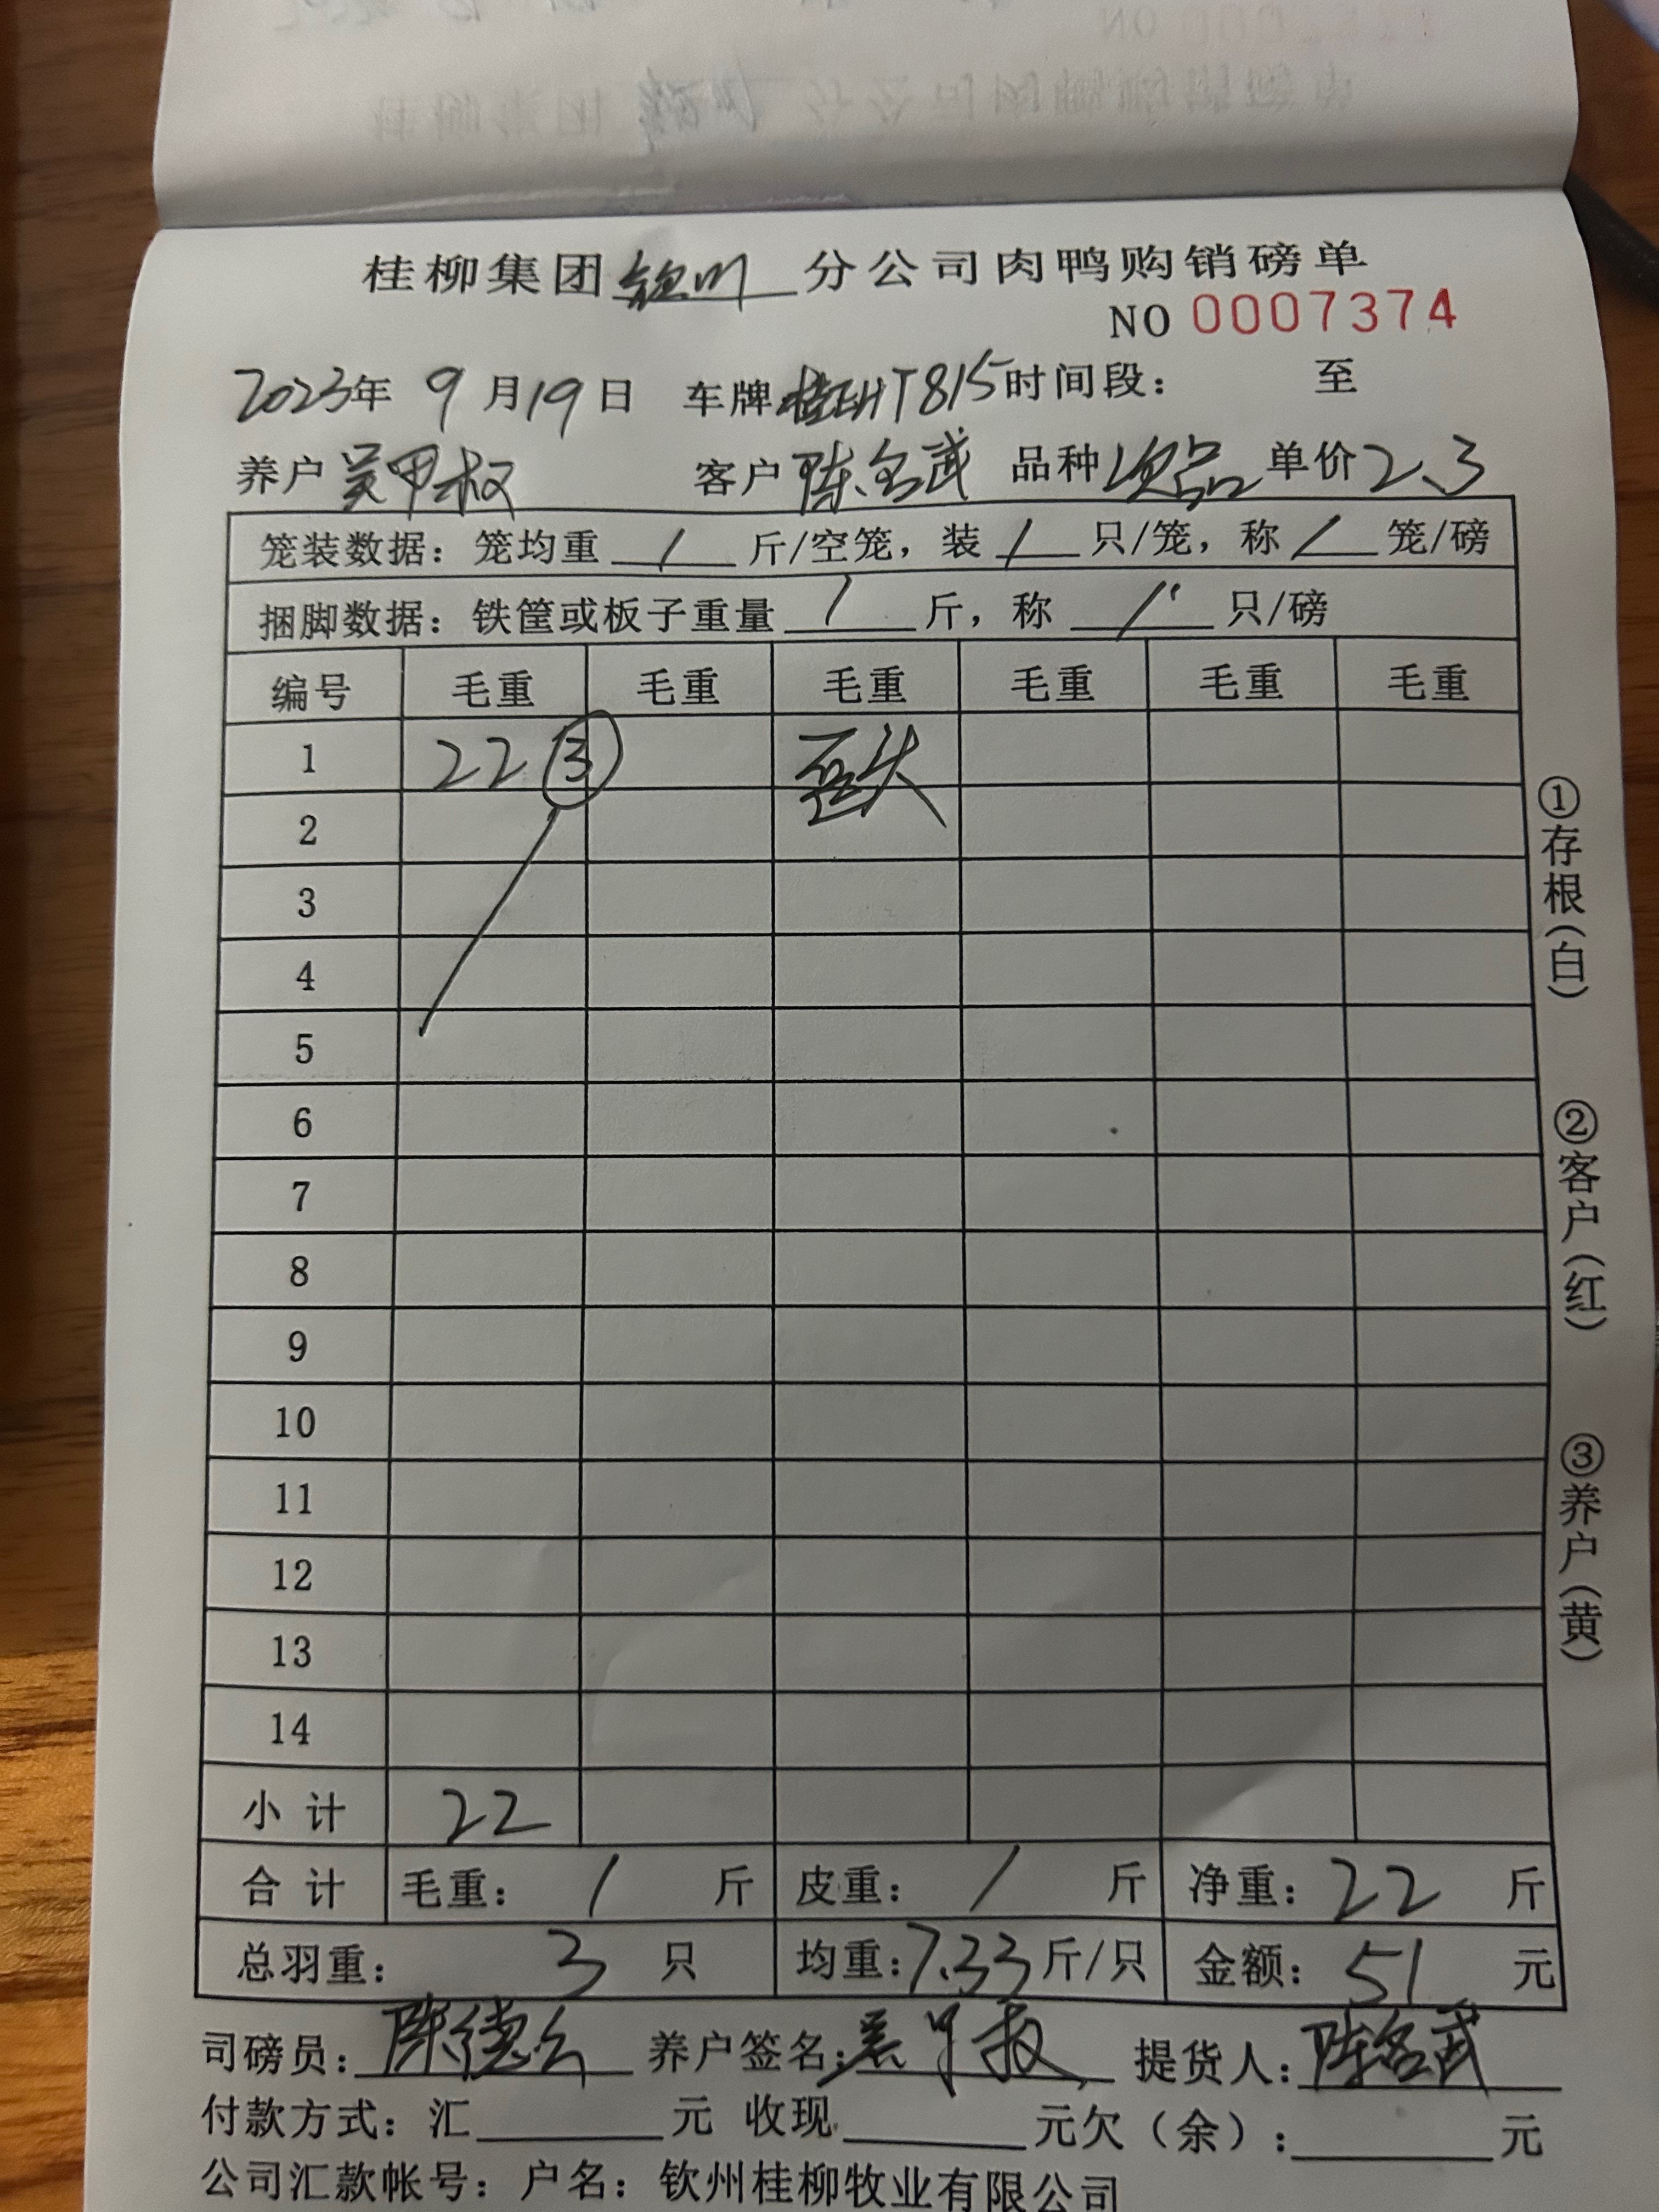 桂柳集团钦州分公司肉鸭购销磅单
NO 0007374
2023年 9月19日 车牌桂EHT815时间段： 至
养户吴甲权 客户陈名武 品种次品 单价2.3
笼装数据：笼均重 / 斤/空笼，装 / 只/笼，称 / 笼/磅
捆脚数据：铁筐或板子重量 / 斤，称 / 只/磅
编号 毛重 毛重 毛重 毛重 毛重 毛重
1 22 ③
2
3
4
5
6
7
8
9
10
11
12
13
14
小计 22
合计 毛重： / 斤 皮重： / 斤 净重：22 斤
总羽重： 3 只 均重：7.33斤/只 金额：51 元
司磅员：陈德 养户签名：吴甲权 提货人：陈名武
付款方式：汇 元 收现 元欠（余）： 元
公司汇款帐号：户名：钦州桂柳牧业有限公司
①存根（白）
②客户（红）
③养户（黄）